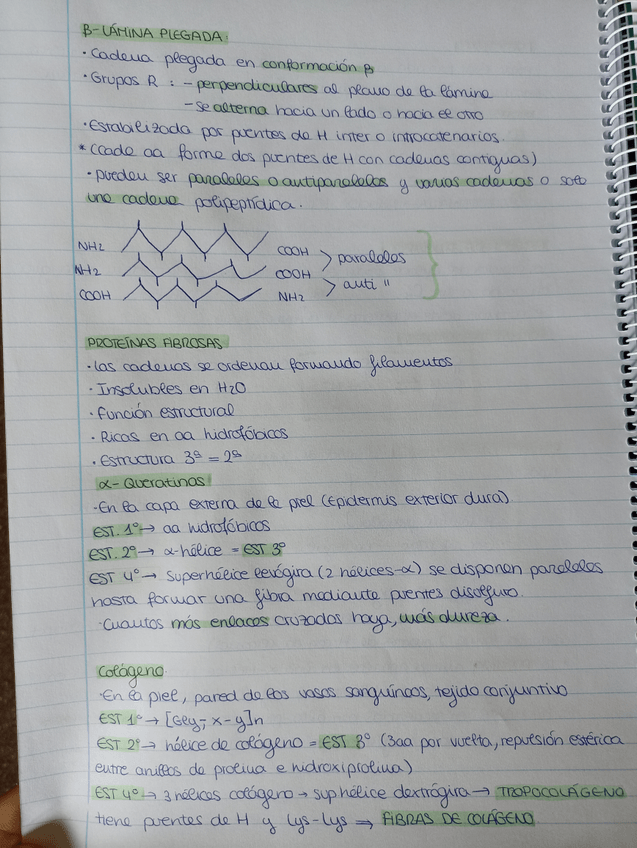 β-LÁMINA PLEGADA
· Cadena plegada en conformación β
· Grupos R : - perpendiculares al plano de la lámina
- se alterna hacia un lado o hacia el otro
· Estabilizada por puentes de H inter o intracatenarios.
* (Cada aa forma dos puentes de H con cadenas contiguas)
· pueden ser paralelas o antiparalelas y varias cadenas o solo
una cadena polipeptídica.
NH2 COOH > paralelas
NH2 COOH
COOH NH2 > anti "
PROTEÍNAS FIBROSAS
· Las cadenas se ordenan formando filamentos
· Insolubles en H2O
· Función estructural
· Ricas en aa hidrofóbicos
· Estructura 3ª = 2ª
α-Queratinas
· En la capa externa de la piel (Epidermis exterior dura)
EST. 1º → aa hidrofóbicos
EST. 2º → α-hélice = EST 3º
EST 4º → Superhélice levógira (2 hélices-α) se disponen paralelas
hasta formar una fibra mediante puentes disulfuro.
· Cuantos más enlaces cruzados haya, más dureza.
Colágeno
· En la piel, pared de los vasos sanguíneos, tejido conjuntivo
EST 1º → [Gly - x - y]n
EST 2º → hélice de colágeno = EST 3º (3aa por vuelta, repulsión estérica
entre anillos de prolina e hidroxiprolina)
EST 4º → 3 hélices colágeno → suphélice dextrógira → TROPOCOLÁGENO
tiene puentes de H y Lys-Lys ⇒ FIBRAS DE COLÁGENO